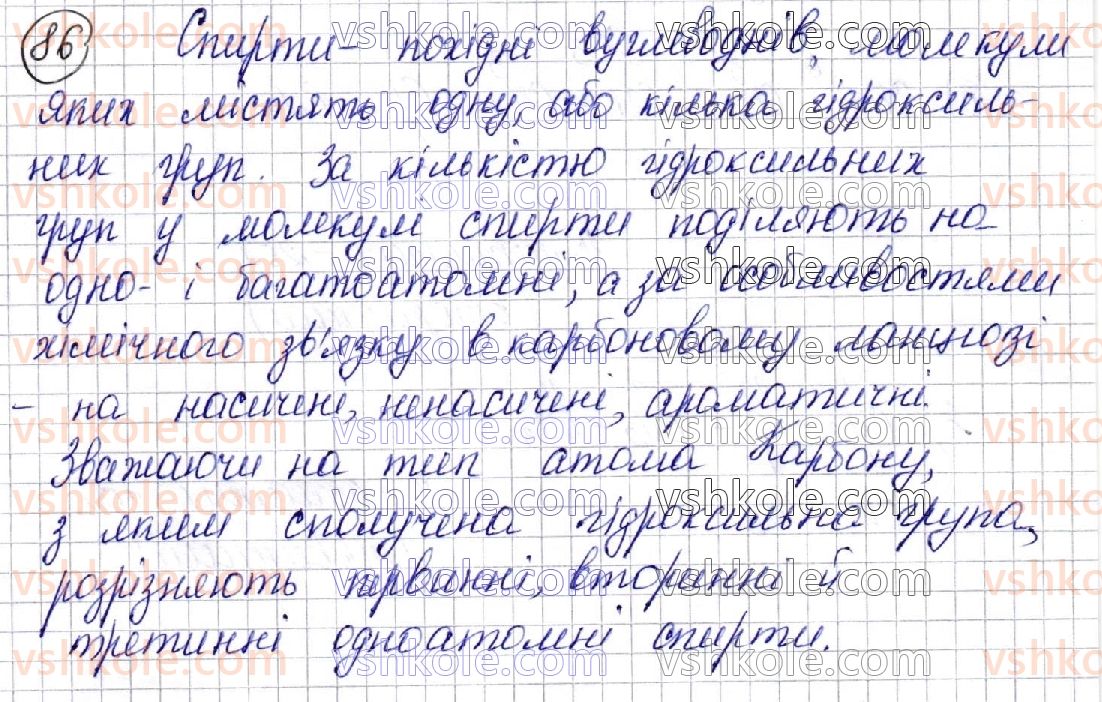 86 Спирти - похідні вуглеводнів, молекули
яких містять одну, або кілька гідроксиль-
них груп. За кількістю гідроксильних
груп у молекулі спирти поділяють на
одно- і багатоатомні, а за особливостями
хімічного зв'язку в карбоновому ланцюзі
- на насичені, ненасичені, ароматичні.
Зважаючи на тип атома Карбону,
з яким сполучена гідроксильна група,
розрізняють первинні, вторинні й
третинні одноатомні спирти.